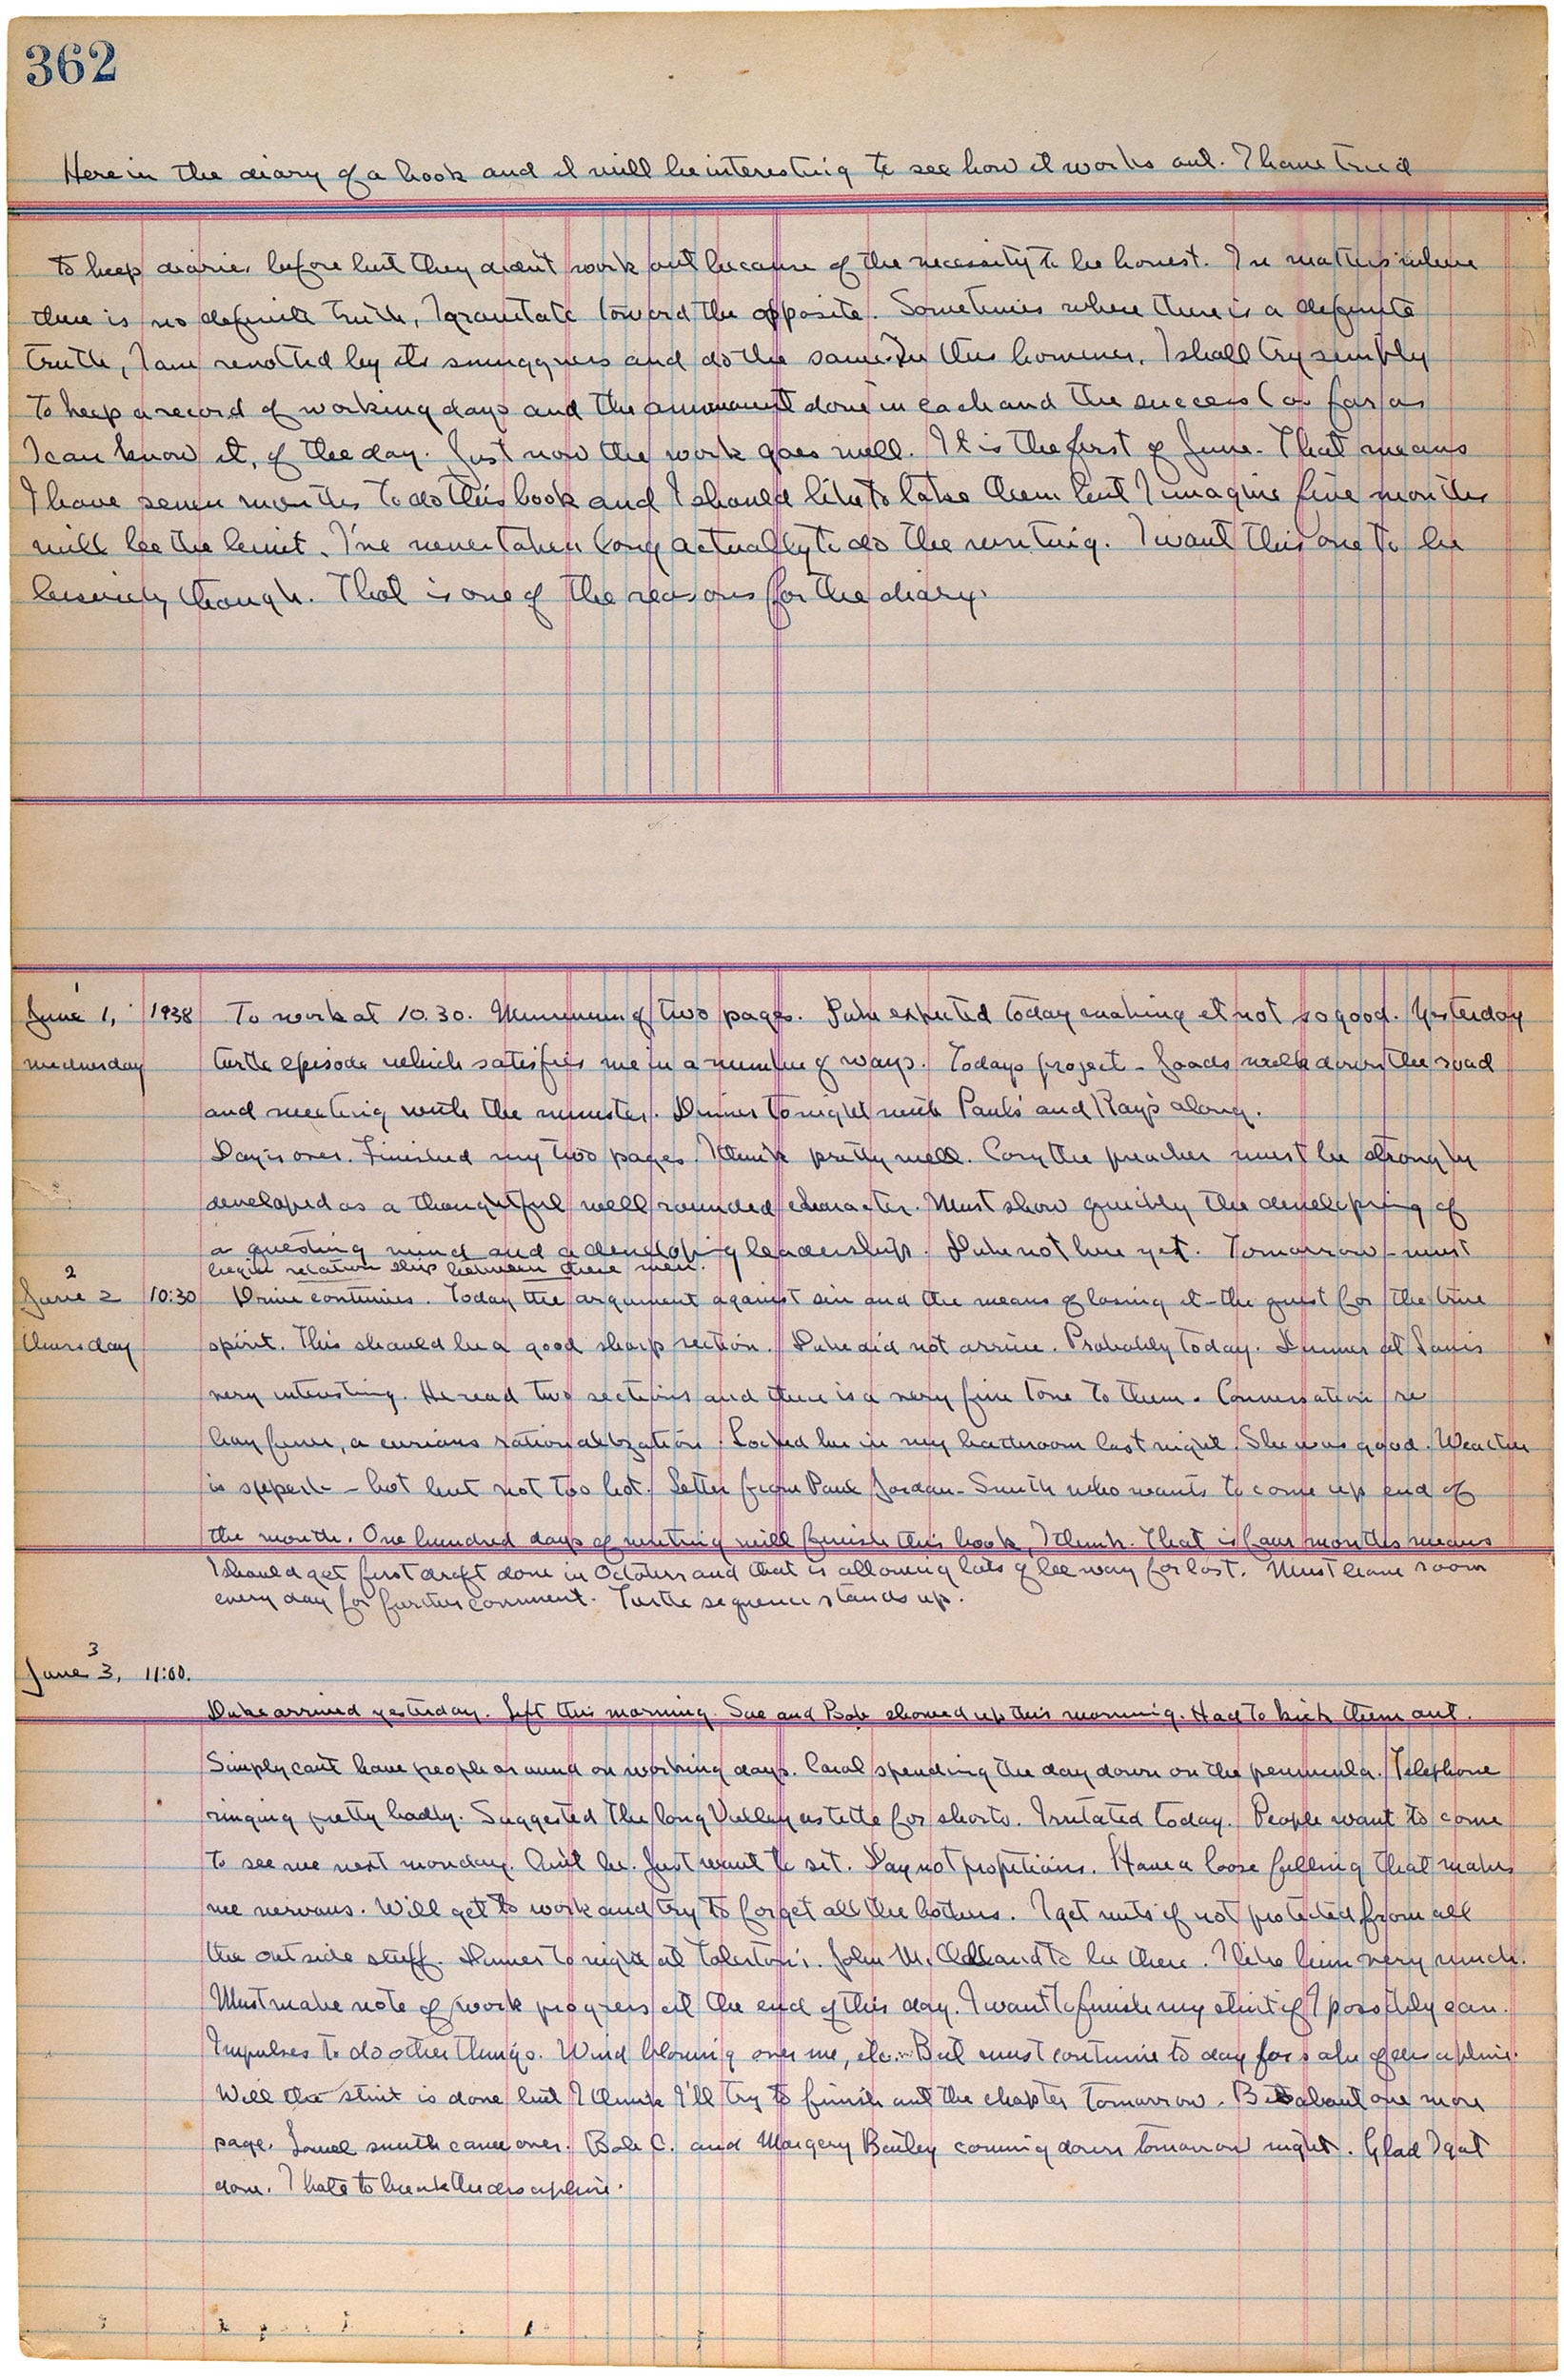 362
Here is the diary of a book and it will be interesting to see how it works out. I have tried
to keep diaries before but they didn't work out because of the necessity to be honest. In matters where
there is no definite truth, I gravitate toward the opposite. Sometimes where there is a definite
truth, I am revolted by its smugness and do the same. In this however, I shall try simply
to keep a record of working days and the amount done in each and the success (as far as
I can know it) of the day. Just now the work goes well. It is the first of June. That means
I have seven months to do this book and I should like to take them but I imagine five months
will be the limit. I've never taken long actually to do the writing. I want this one to be
leisurely though. That is one of the reasons for the diary.
1
June 1, 1938 To work at 10.30. Minimum of two pages. Duke expected today making it not so good. Yesterday
Wednesday turtle episode which satisfies me in a number of ways. Todays project - Joads walk down the road
and meeting with the minister. Dinner tonight with Pauls and Rays along.
Day is over. Finished my two pages. I think pretty well. Casy the preacher must be strongly
developed as a thoughtful well rounded character. Must show quickly the developing of
a questing mind and a developing leadership. Duke not here yet. Tomorrow - must
begin relation ship between these men.
2
June 2 10:30 continues. Today the argument against sin and the means of losing it - the quest for the true
Thursday spirit. This should be a good sharp section. Duke did not arrive. Probably today. Dinner at
very interesting. He read two sections and there is a very fine tone to them. Conversation re
hay fever, a curious rationalization. Locked her in my bathroom last night. She was good. Weather
is superb - hot but not too hot. Letter from Paul Jordan-Smith who wants to come up end of
the month. One hundred days of writing will finish this book, I think. That is four months means
I should get first draft done in October and that is allowing lots of lee way for lost. Must leave room
every day for further comment. Turtle sequence stands up.
3
June 3, 11:00.
Duke arrived yesterday. Left this morning. Sue and Bob showed up this morning. Had to kick them out.
Simply can't have people around on working days. Carol spending the day down on the peninnula. Telephone
ringing pretty badly. Suggested The Long Valley as title for shorts. Irritated today. People want to come
to see me next monday. Can't be. Just want to sit. Day not propitious. Have a loose feeling that makes
me nervous. Will get to work and try to forget all the bothers. I get nuts if not protected from all
the out side stuff. Dinner to night at Tolerton's. John M. to be there. I like him very much.
Must make note of work progress at the end of this day. I want to finish my stint if I possibly can.
Impulses to do other things. Wind blowing over me, etc. But must continue to day for sake of discipline.
Well the stint is done but I think I'll try to finish out the chapter tomorrow. about one more
page. smith came over. Bob C. and Margery Bailey coming down tomorrow night. Glad I got
done. I hate to break the discipline.